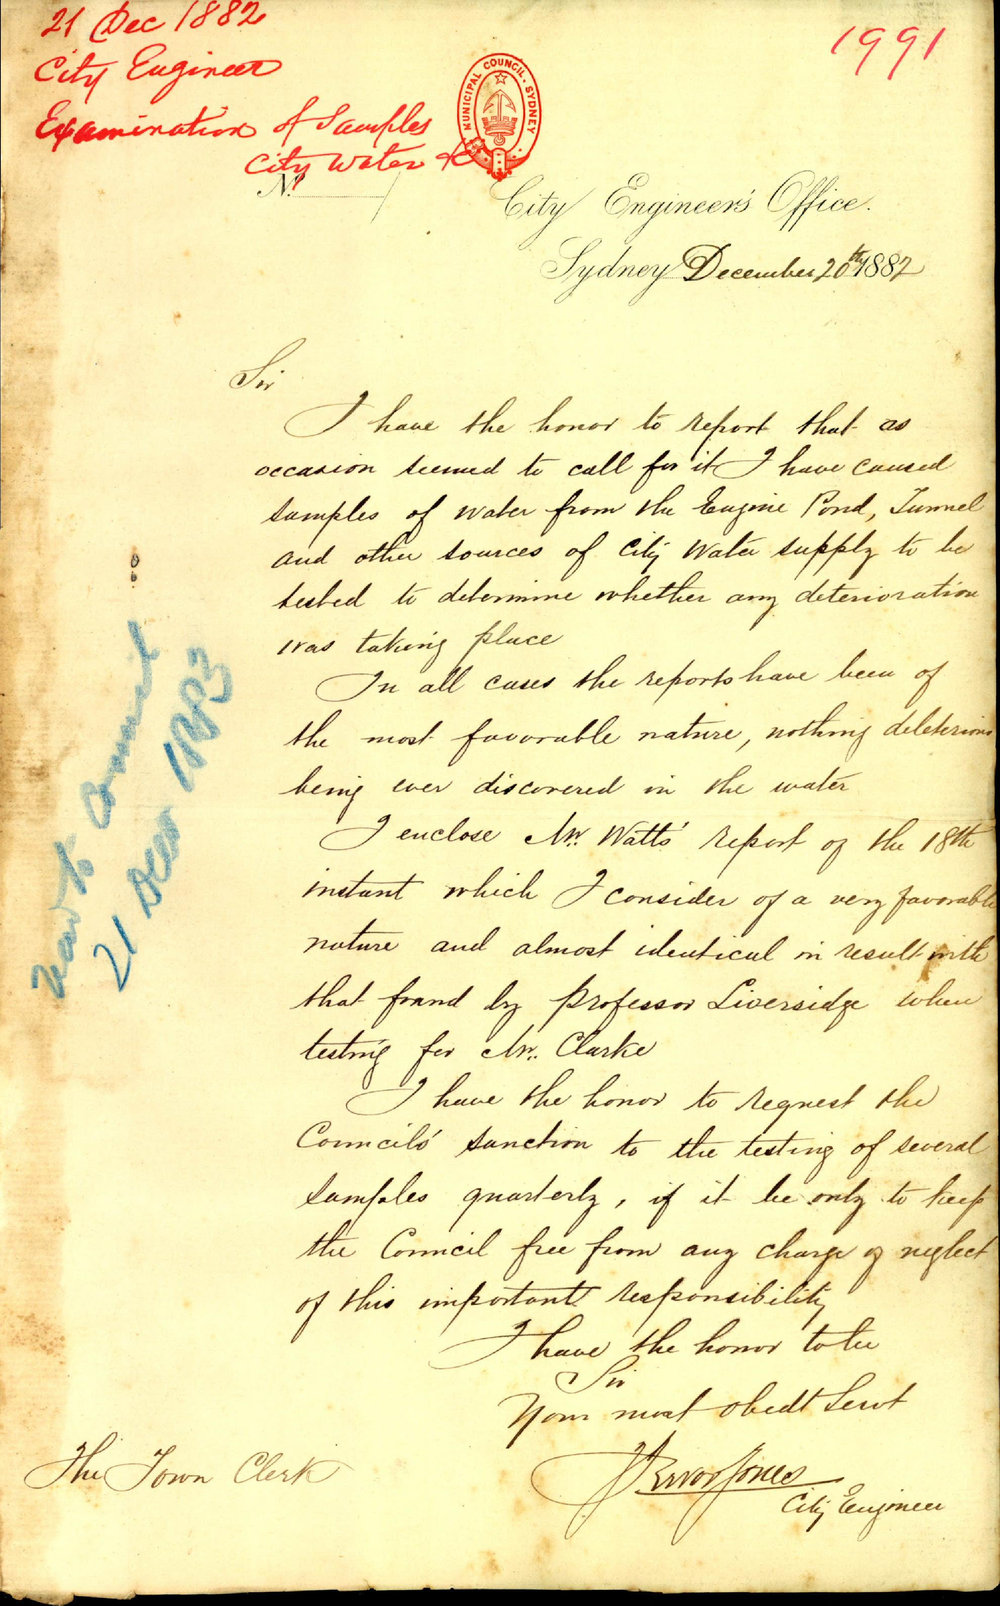 21 Dec 1882
City Engineer
Examination of Samples
City Water &c
1991
MUNICIPAL COUNCIL · SYDNEY
No.
City Engineer's Office.
Sydney December 20th 1882
Sir
I have the honor to report that as
occasion seemed to call for it I have caused
samples of water from the Engine Pond, Tunnel
and other sources of City Water supply to be
tested to determine whether any deterioration
was taking place
In all cases the reports have been of
the most favorable nature, nothing deleterious
being ever discovered in the water
I enclose Mr. Watts' report of the 18th
instant which I consider of a very favorable
nature and almost identical in result with
that found by Professor Liversidge when
testing for Mr. Clarke
I have the honor to request the
Council's sanction to the testing of several
samples quarterly, if it be only to keep
the Council free from any charge of neglect
of this important responsibility
I have the honor to be
Sir
Your most obedt Servt
J Trevor Jones
City Engineer
The Town Clerk
to Commit
21 Decr